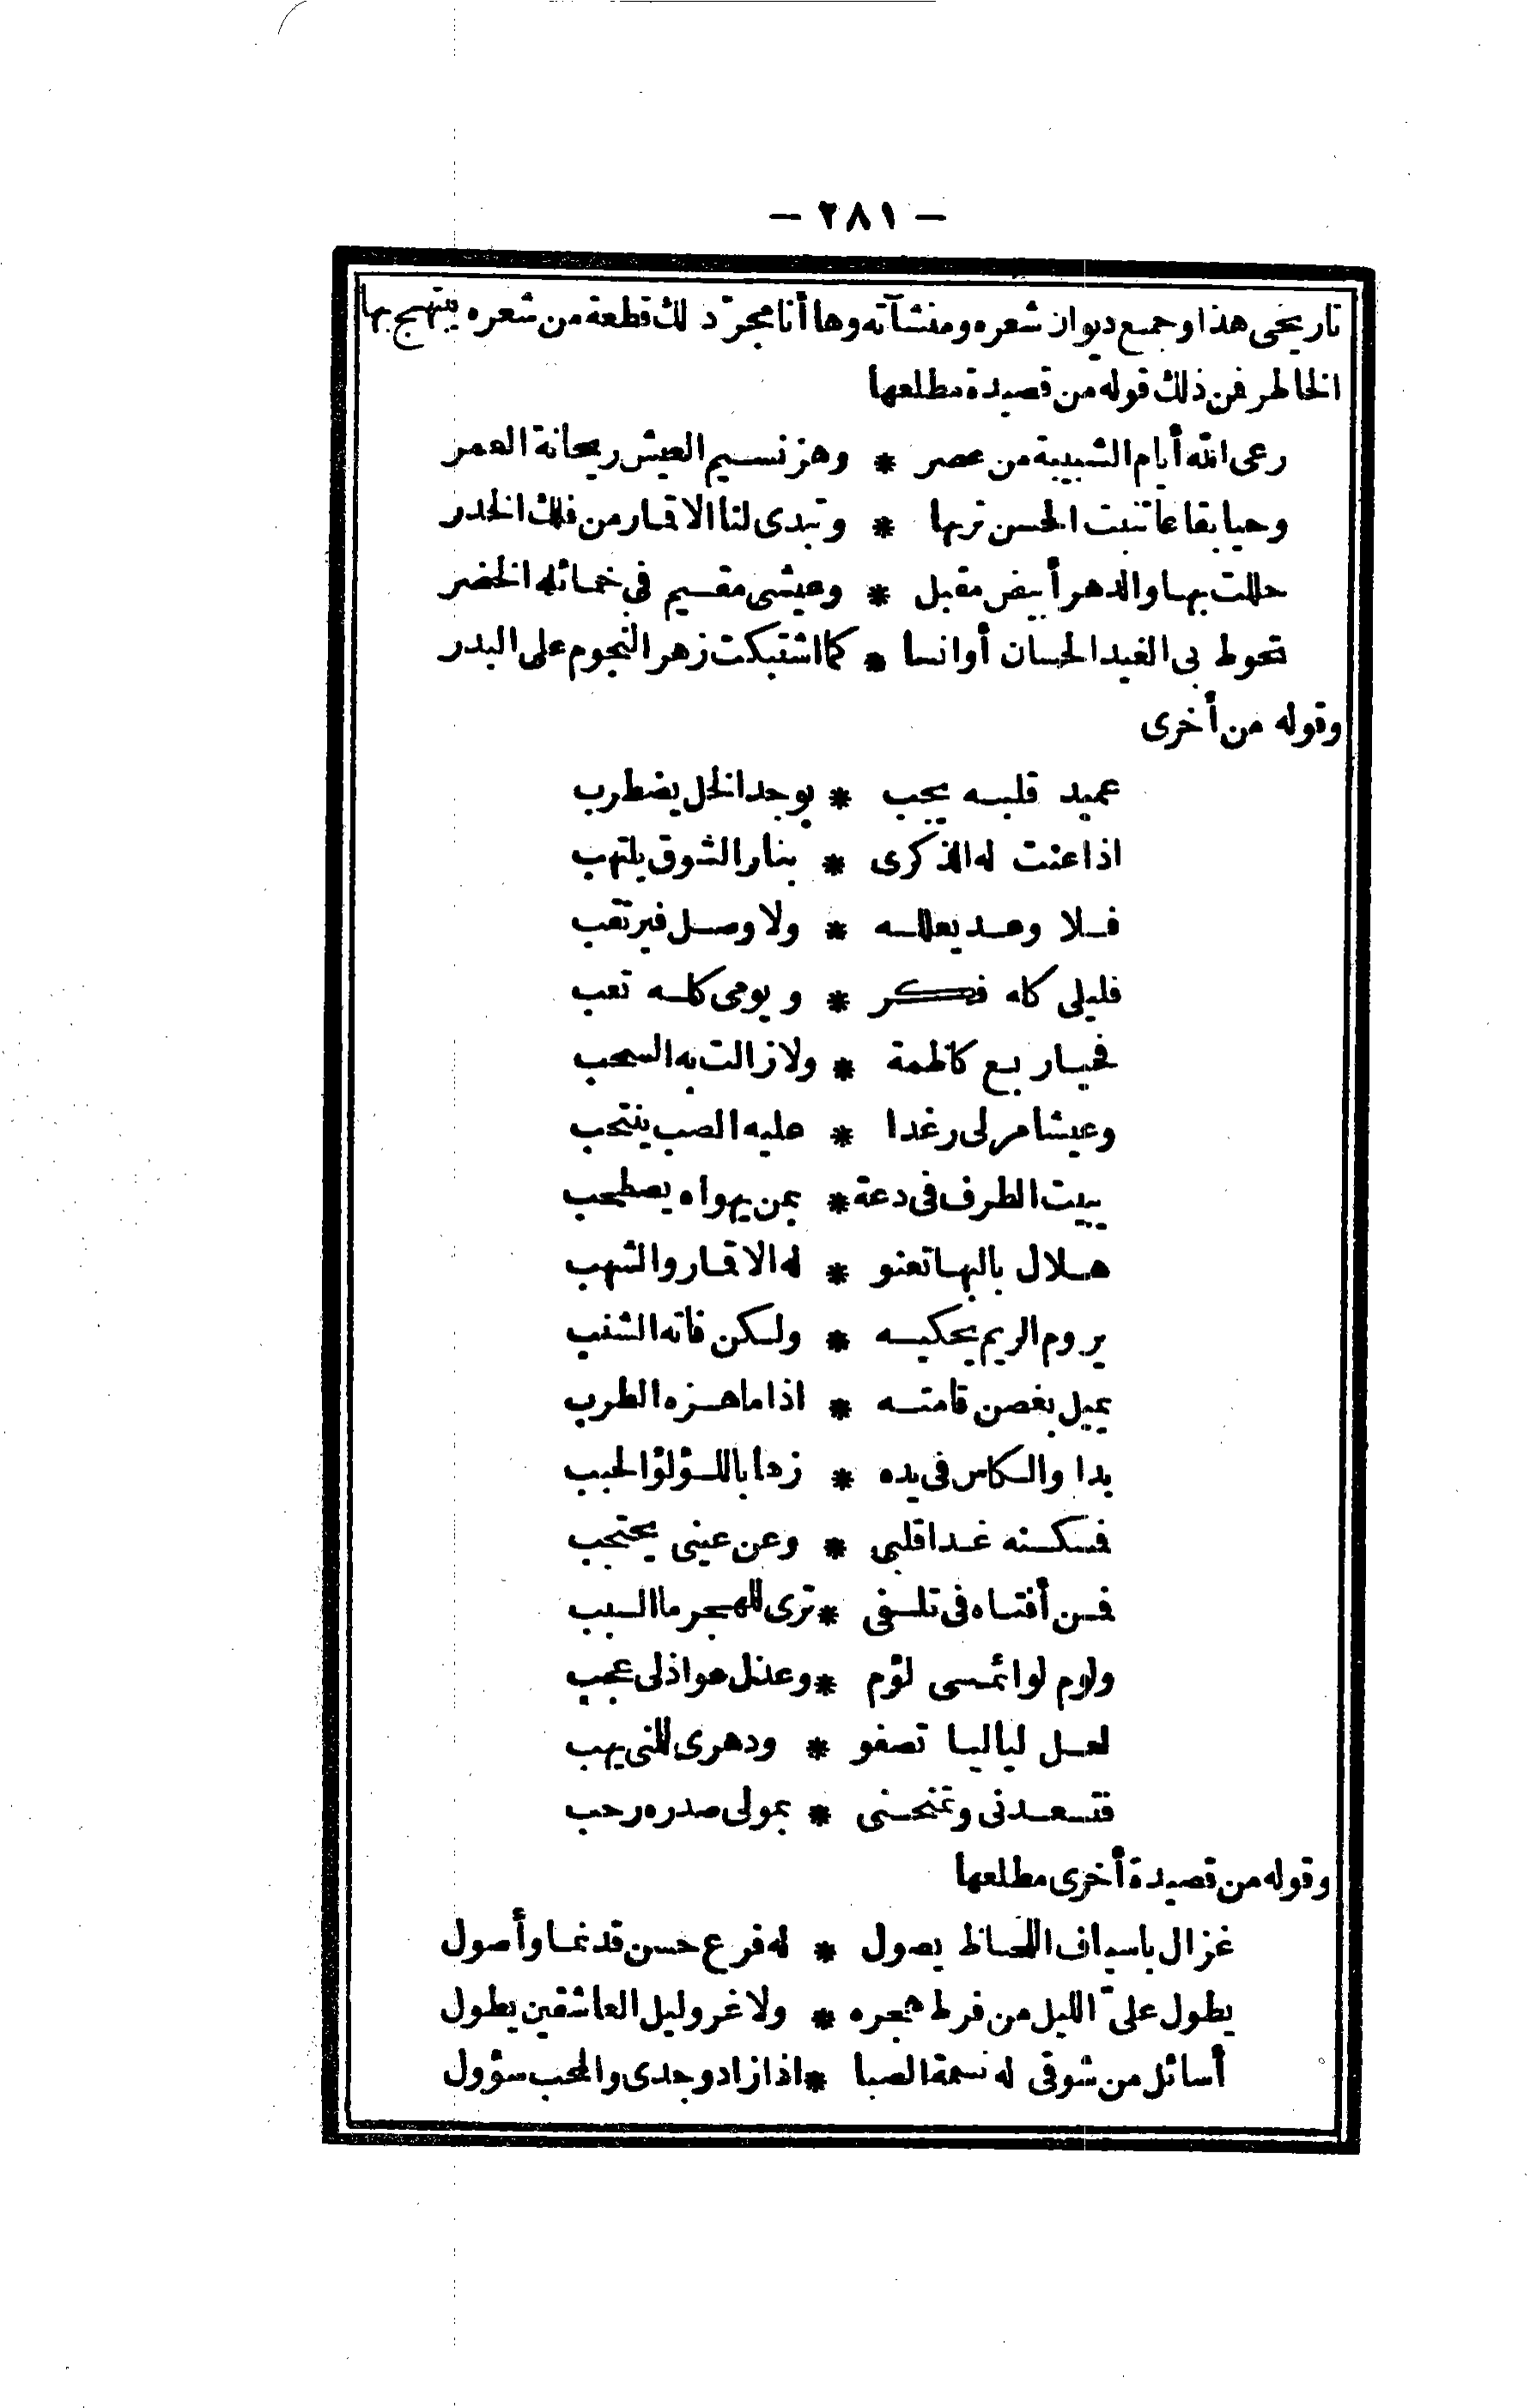 — ٢٨١ —
تاريخى هذا وجمع ديوان شعره ومنشآته وها أنا مجرّد لك قطعة من شعره يبتهج بها
الخاطر فمن ذلك قوله من قصيدة مطلعها
رعى الله أيام الشبيبة من عصر * وهز نسيم العيش ريحانة العمر
وحيا بقاعا تنبت الحسن تربها * وتبدى لنا الاقمار من فلك الخدر
حللت بها والدهر أبيض مقبل * وعيشى مقيم فى خمائله الخضر
تحوط بى الغيد الحسان أوانسا * كما اشتبكت زهر النجوم على البدر
وقوله من أخرى
عميد قلبه يجب * بوجد الخل يضطرب
اذا عنت له الذكرى * بنار الشوق يلتهب
فلا وعد يعلله * ولا وصل فيرتقب
فليلى كله فكر * ويومى كله تعب
فحيا ربع كاظمة * ولا زالت به السحب
وعيشا مر لى رغدا * عليه الصب ينتحب
يبيت الطرف فى دعة * بمن يهواه يصطحب
هلال بالبها تعنو * له الاقمار والشهب
يروم الريم يحكيه * ولكن فاته الشنب
يميل بغصن قامته * اذا ما هزه الطرب
بدا والكاس فى يده * زها باللؤلؤ الحبب
فسكنه غدا قلبى * وعن عينى يحتجب
فمن أفتاه فى تلفى * ترى للهجر ما السبب
ولاوم لوائمى لؤم * وعذل عواذلى عجب
لعل لياليا تصفو * ودهرى للمنى يهب
فتسعدنى وتمنحنى * بمولى صدره رحب
وقوله من قصيدة أخرى مطلعها
غزال باسياف اللحاظ يصول * له فرع حسن قد نما وأصول
يطول علىّ الليل من فرط هجره * ولا غرو ليل العاشقين يطول
أسائل من شوقى له نسمة الصبا * اذا زاد وجدى والمحب سؤول